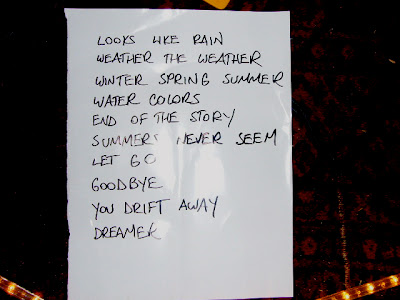 LOOKS LIKE RAIN
WEATHER THE WEATHER
WINTER SPRING SUMMER
WATER COLORS
END OF THE STORY
SUMMERS NEVER SEEM
LET GO
GOODBYE
YOU DRIFT AWAY
DREAMER